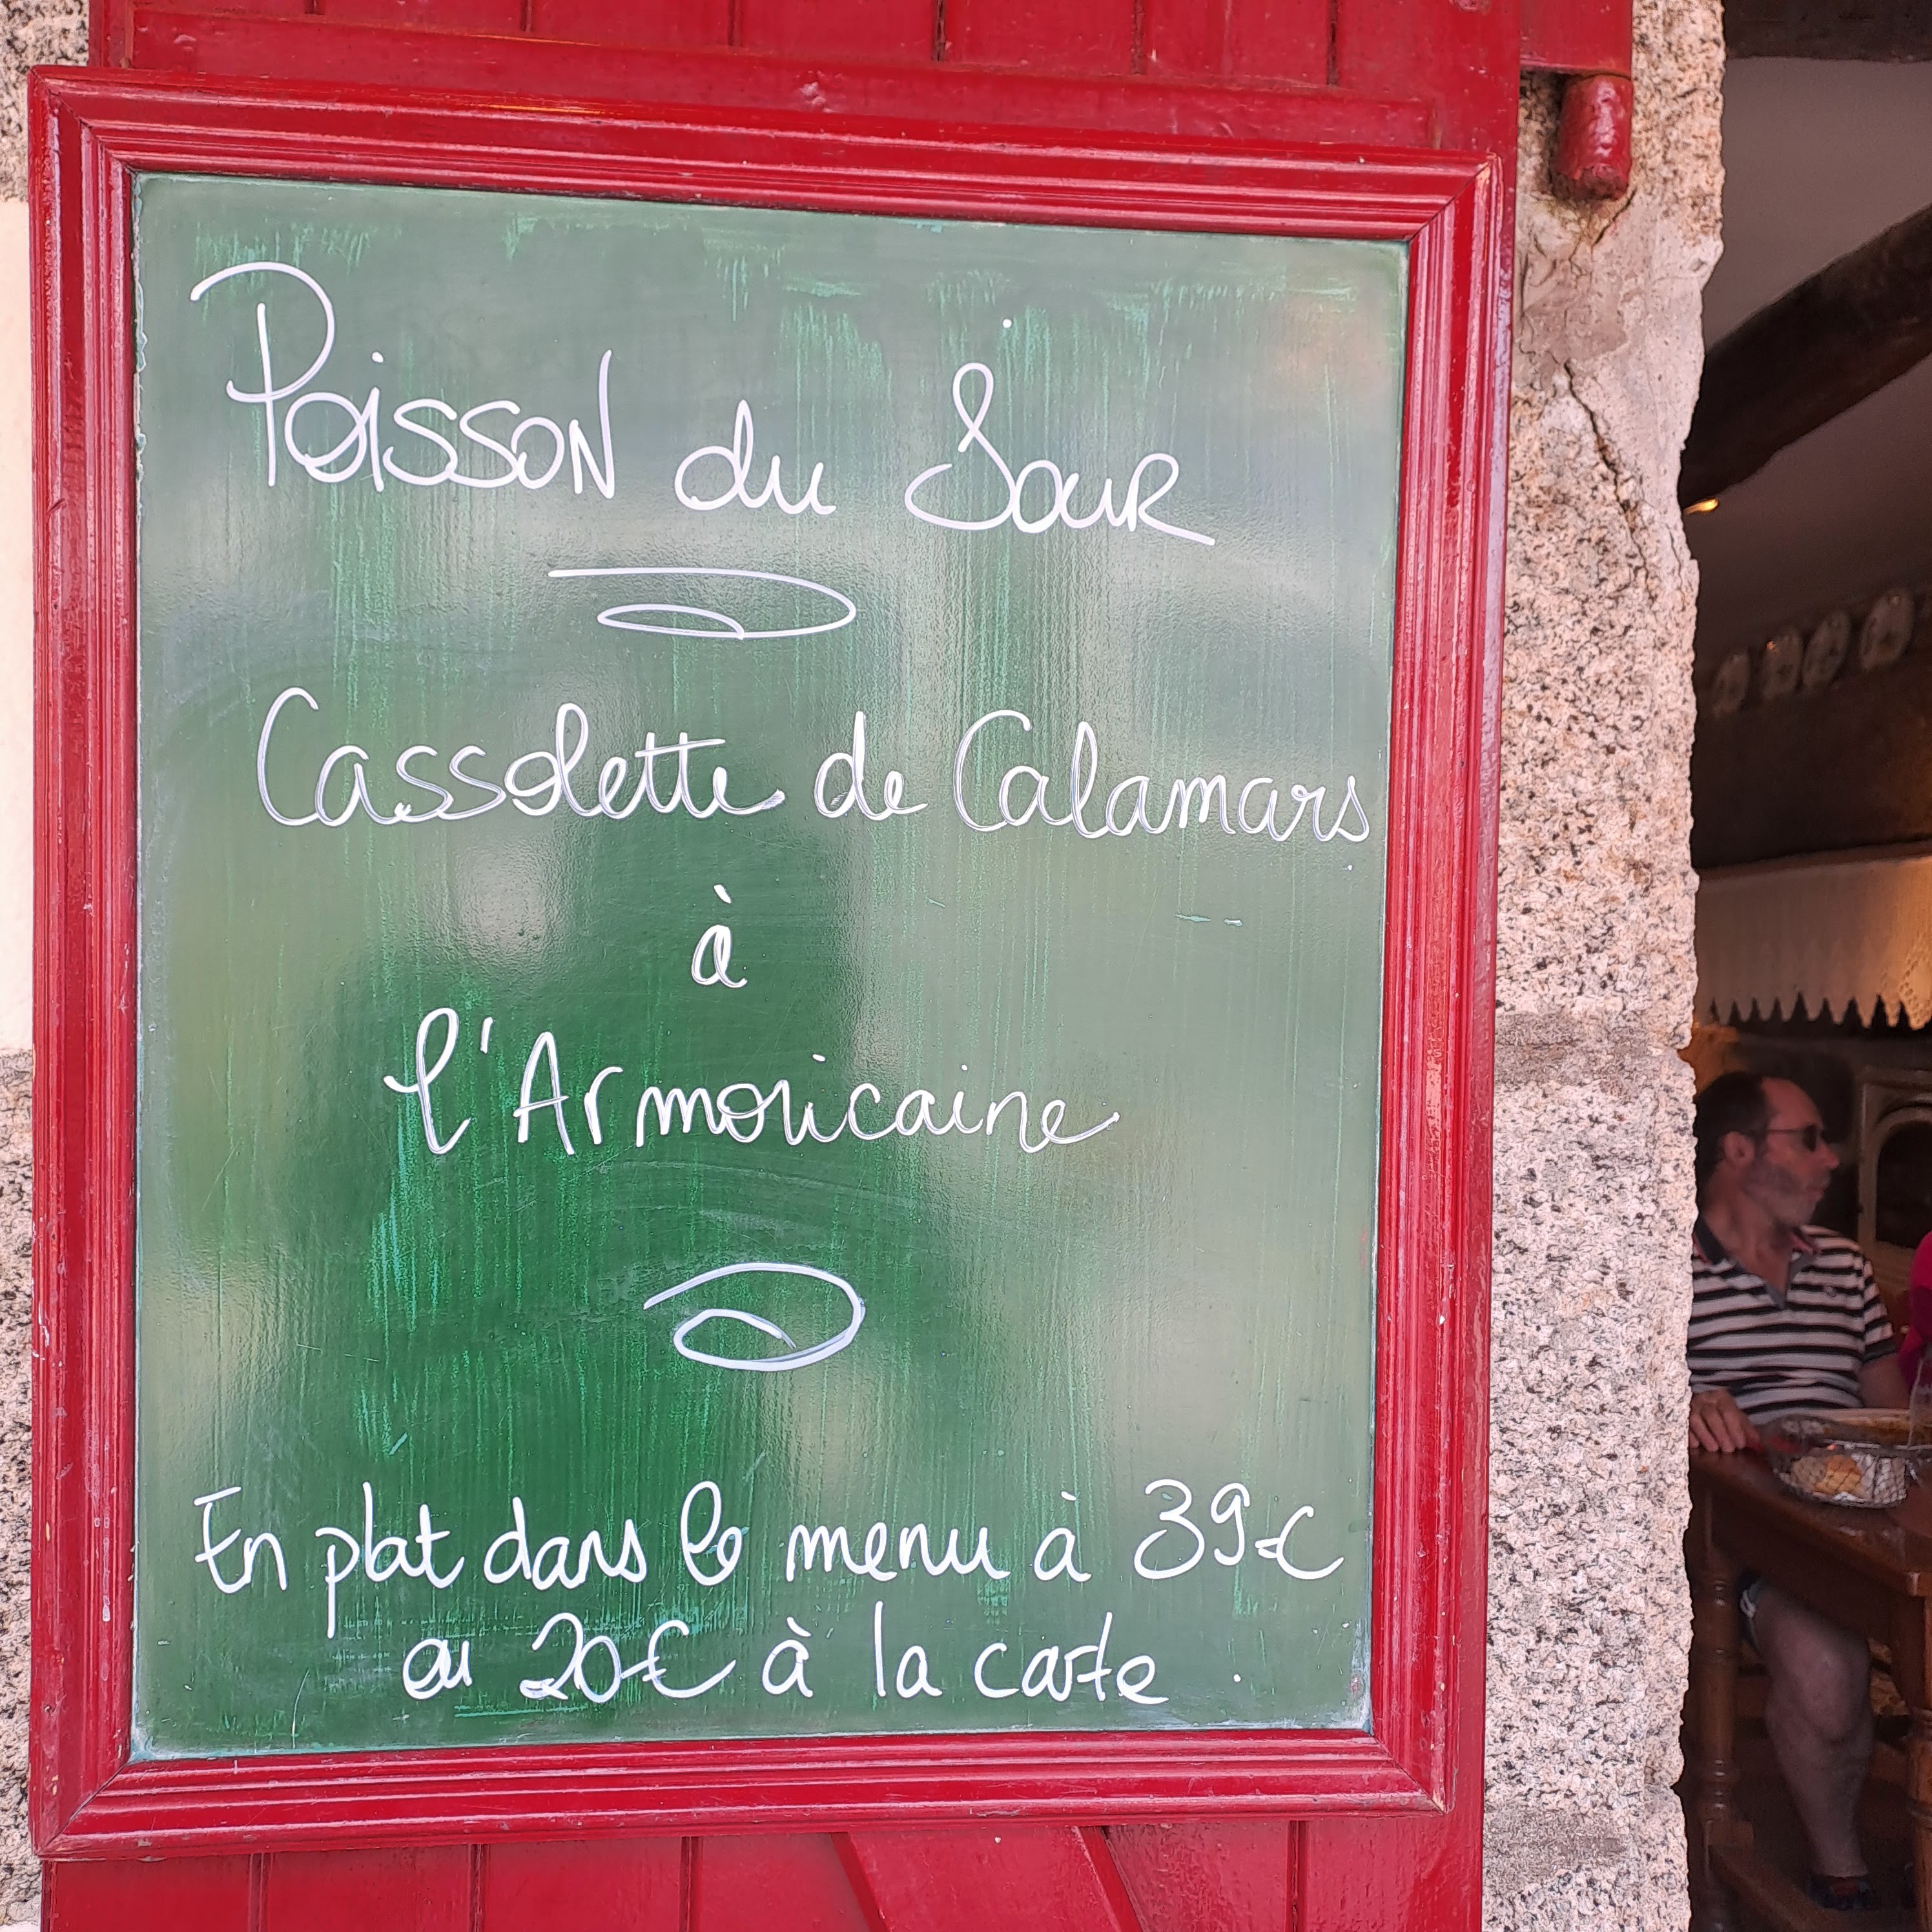 Poisson du Jour
Cassolette de Calamars
à
l'Armoricaine
En plat dans le menu à 39€
ou 20€ à la carte